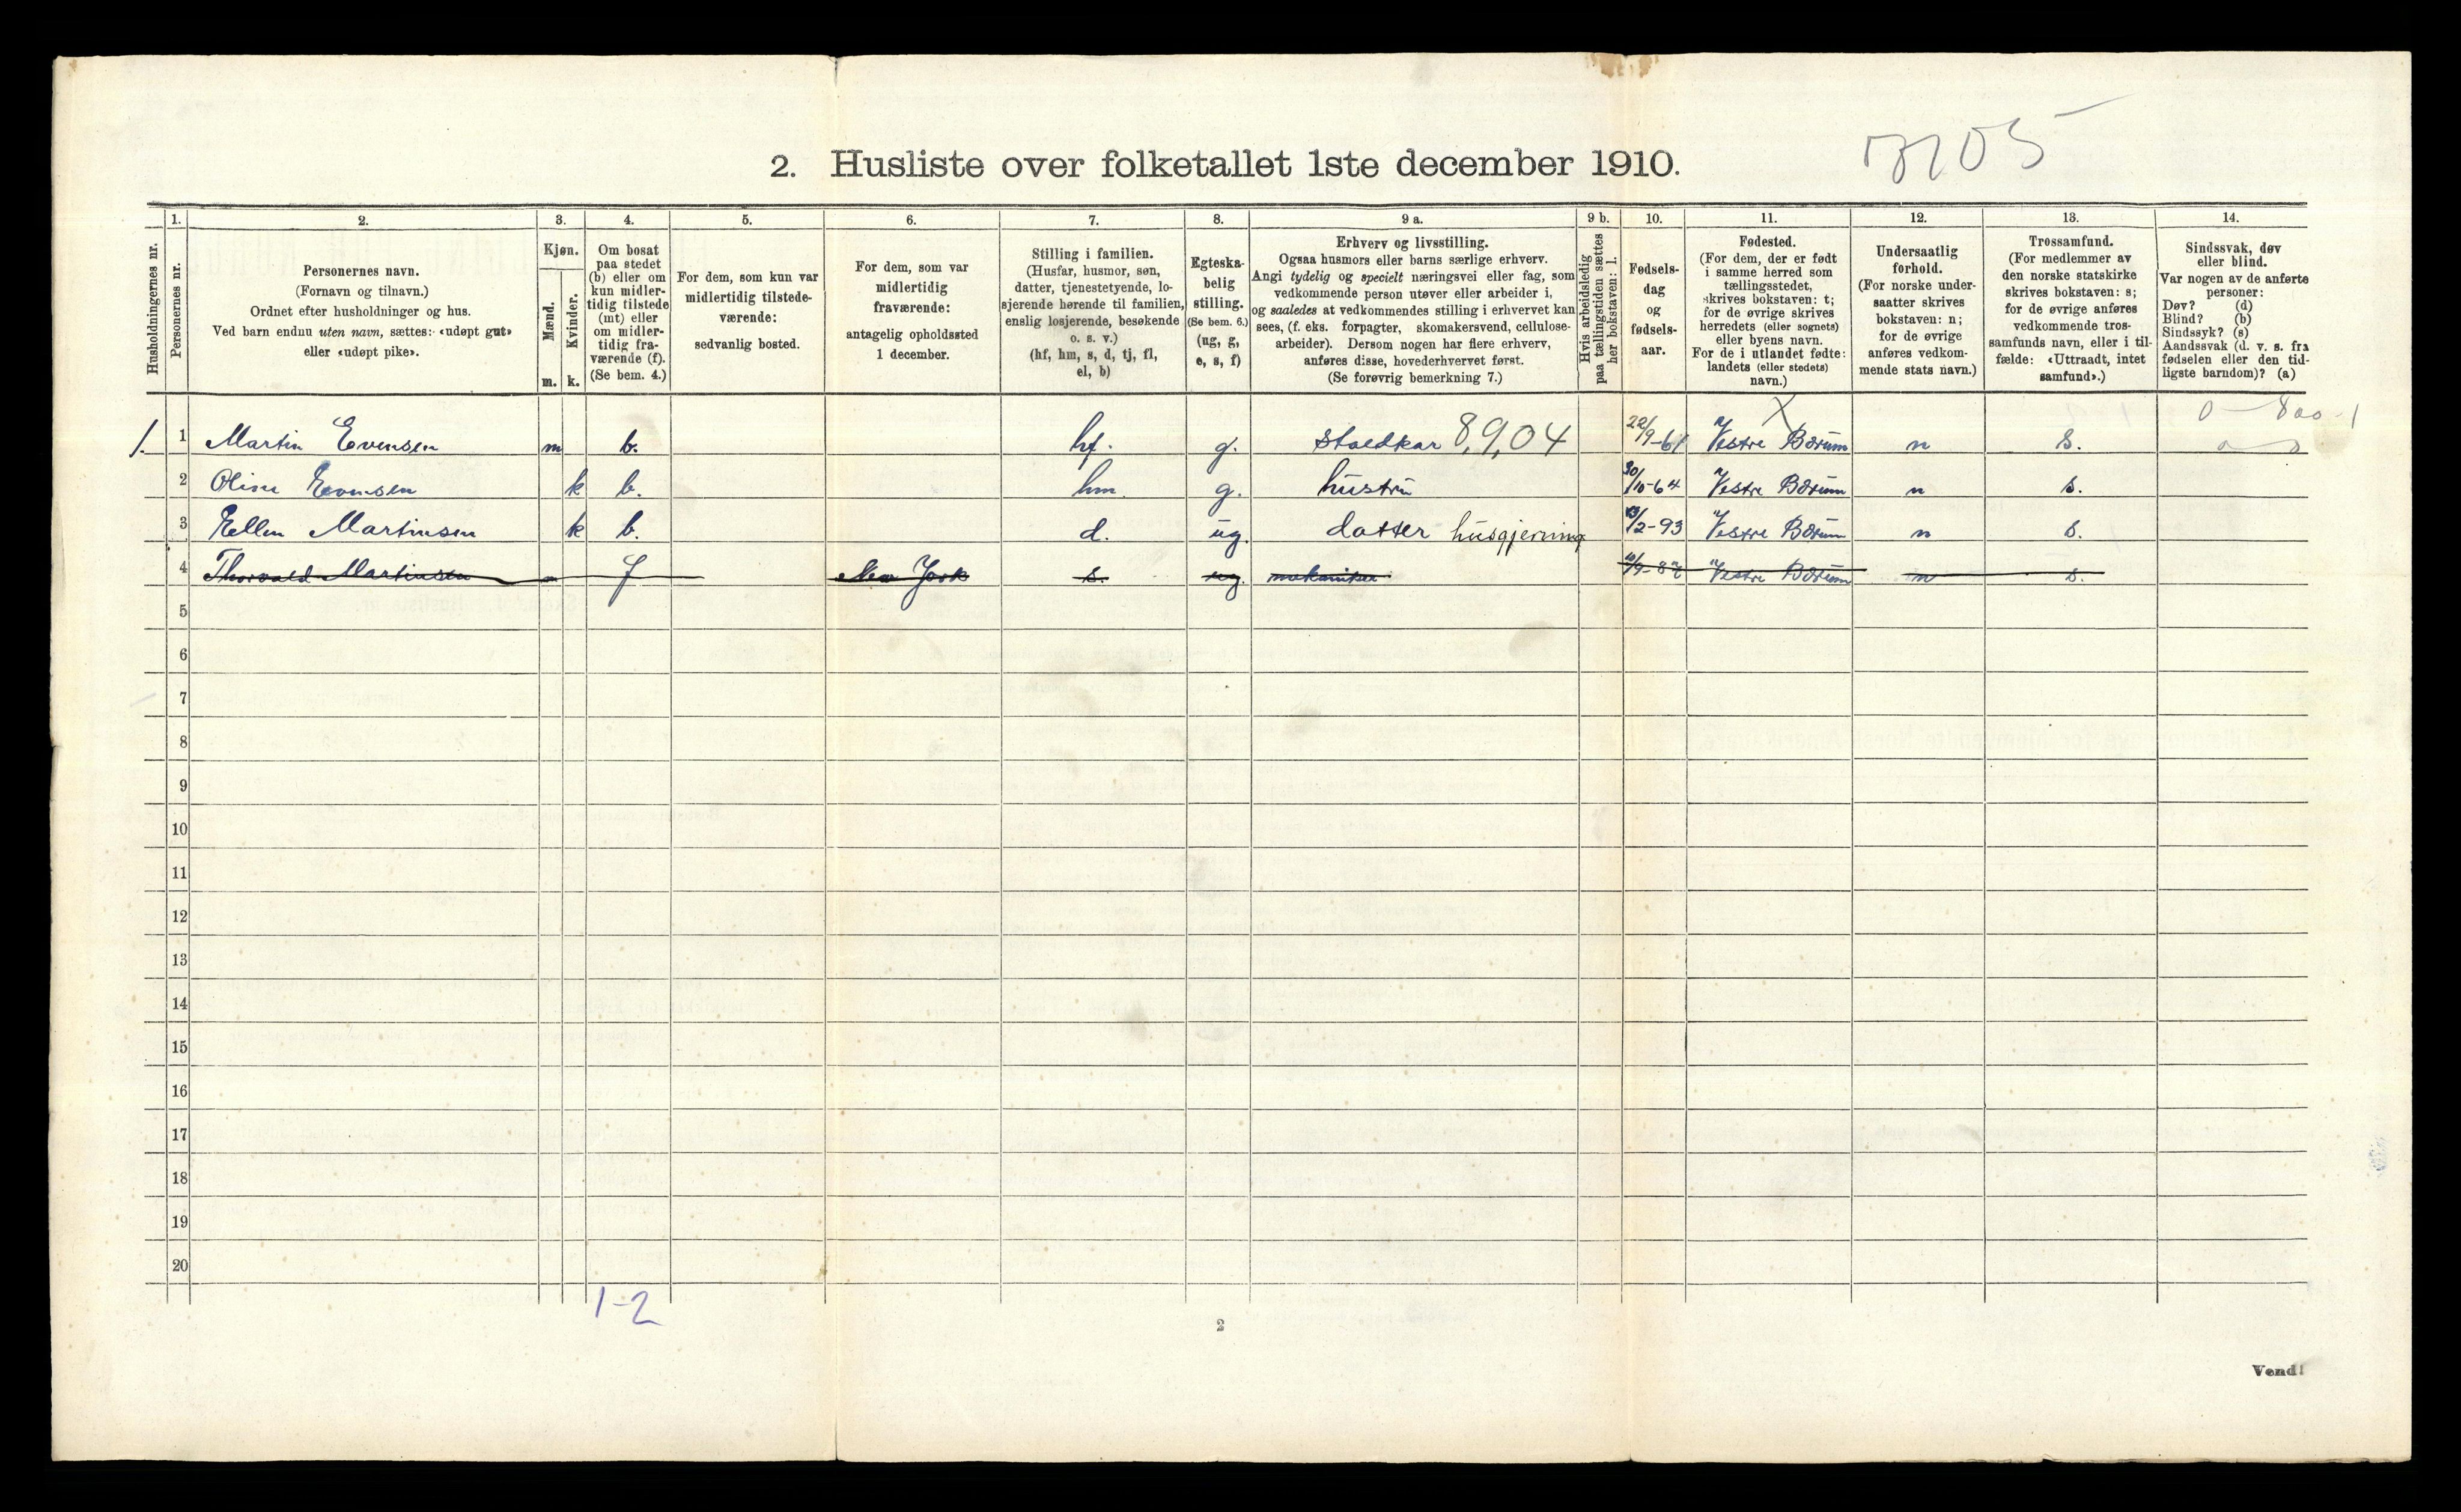 2. Husliste over folketallet 1ste december 1910.
Husholdningernes nr.
1.
Personernes nr.
2.
Personernes navn.
(Fornavn og tilnavn.)
Ordnet efter husholdninger og hus.
Ved barn endnu uten navn, sættes: «udøpt gut»
eller «udøpt pike».
3.
Kjøn.
Mænd.
Kvinder.
m.
k.
4.
Om bosat
paa stedet
(b) eller om
kun midler-
tidig tilstede
(mt) eller
om midler-
tidig fra-
værende (f).
(Se bem. 4.)
5.
For dem, som kun var
midlertidig tilstede-
værende:
sedvanlig bosted.
6.
For dem, som var
midlertidig
fraværende:
antagelig opholdssted
1 december.
7.
Stilling i familien.
(Husfar, husmor, søn,
datter, tjenestetyende, lo-
sjerende hørende til familien,
enslig losjerende, besøkende
o. s. v.)
(hf, hm, s, d, tj, fl,
el, b)
8.
Egteska-
belig
stilling.
(Se bem. 6.)
(ug, g,
e, s, f)
9 a.
Erhverv og livsstilling.
Ogsaa husmors eller barns særlige erhverv.
Angi tydelig og specielt næringsvei eller fag, som
vedkommende person utøver eller arbeider i,
og saaledes at vedkommendes stilling i erhvervet kan
sees, (f. eks. forpagter, skomakersvend, cellulose-
arbeider). Dersom nogen har flere erhverv,
anføres disse, hovederhvervet først.
(Se forøvrig bemerkning 7.)
9 b.
Hvis arbeidsledig
paa tællingstiden sættes
her bokstaven: l.
10.
Fødsels-
dag
og
fødsels-
aar.
11.
Fødested.
(For dem, der er født
i samme herred som
tællingsstedet,
skrives bokstaven: t;
for de øvrige skrives
herredets (eller sognets)
eller byens navn.
For de i utlandet fødte:
landets (eller stedets)
navn.)
12.
Undersaatlig
forhold.
(For norske under-
saatter skrives
bokstaven: n;
for de øvrige
anføres vedkom-
mende stats navn.)
13.
Trossamfund.
(For medlemmer av
den norske statskirke
skrives bokstaven: s;
for de øvrige anføres
vedkommende tros-
samfunds navn, eller i til-
fælde: «Uttraadt, intet
samfund».)
14.
Sindssvak, døv
eller blind.
Var nogen av de anførte
personer:
Døv? (d)
Blind? (b)
Sindssyk? (s)
Aandssvak (d. v. s. fra
fødselen eller den tid-
ligste barndom)? (a)
1. 1 Martin Evensen m b. hf. g. Staldkar 8,9,04 22/9-61 Vestre Bærum n s.
2 Oline Evensen k b. hm. g. hustru 30/10-64 Vestre Bærum n s.
3 Ellen Martinsen k b. d. ug. datter husgjerning /2-93 Vestre Bærum n s.
4 Thorvald Martinsen m f New York s. ug. mekaniker Vestre Bærum n s.
5
6
7
8
9
10
11
12
13
14
15
16
17
18
19
20
1-2
2
Vend!